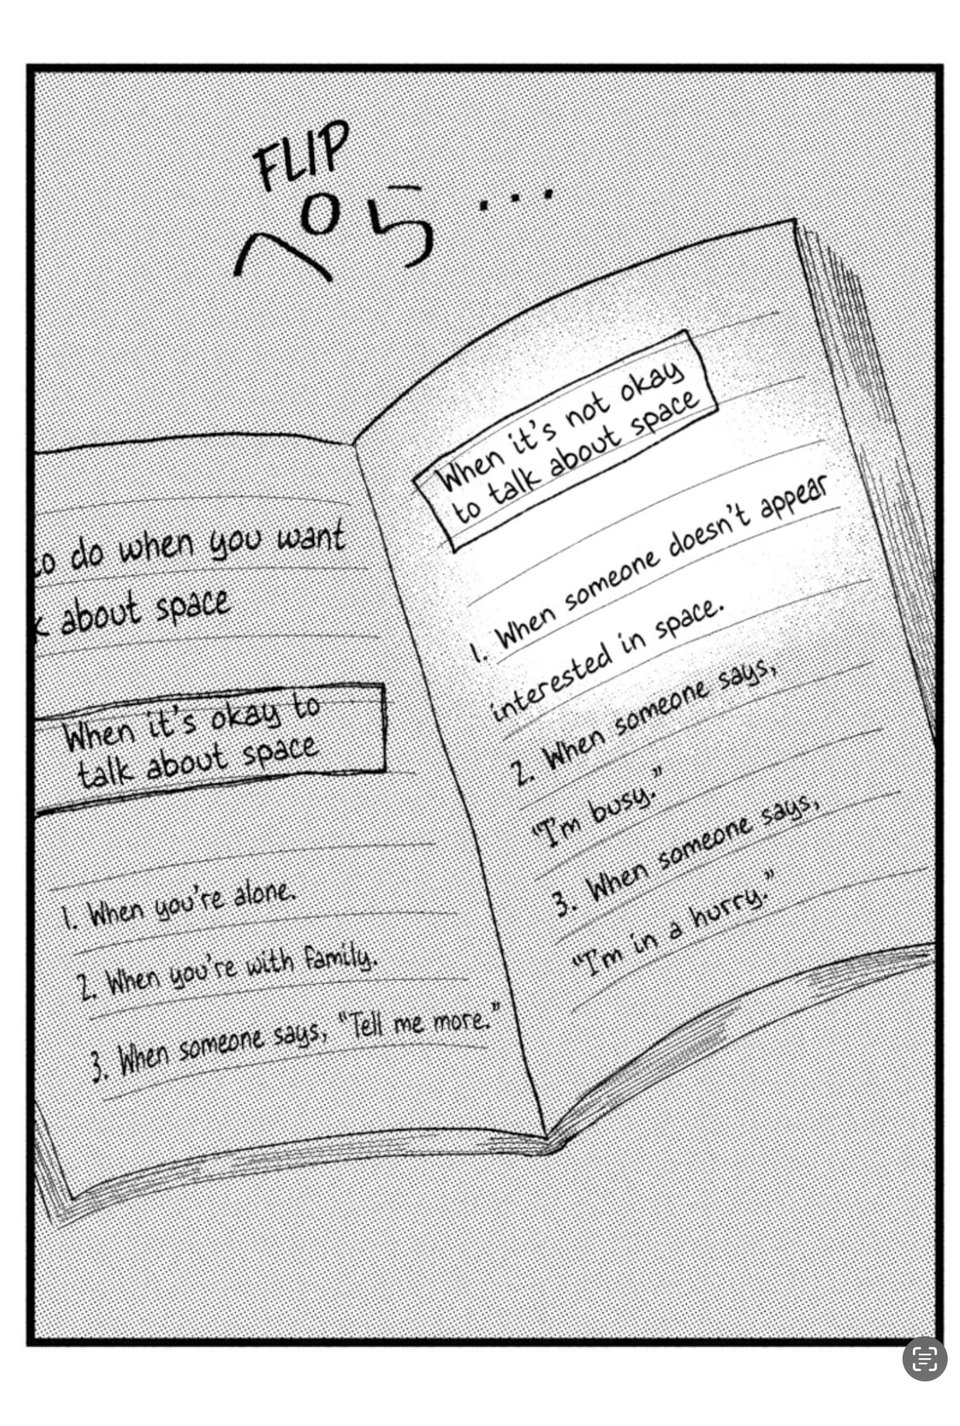 FLIP
ぺら...
to do when you want
about space
When it's okay to
talk about space
1. When you're alone.
2. When you're with family.
3. When someone says, “Tell me more.”
When it's not okay
to talk about space
1. When someone doesn't appear
interested in space.
2. When someone says,
“I'm busy.”
3. When someone says,
“I'm in a hurry.”